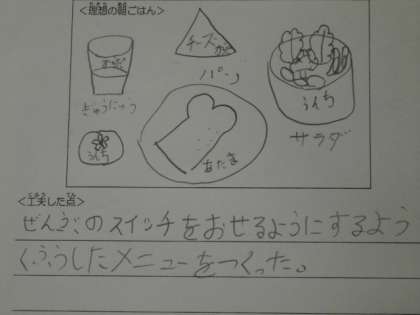 <理想の朝ごはん>
チーズ
パン
ぎゅうにゅう
うんち
あたま
うんち
サラダ
<工夫した点>
ぜんぶのスイッチをおせるようにするよう
くふうしたメニューをつくった。